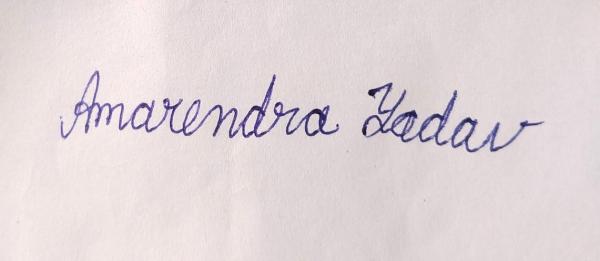 Amarendra Yadav